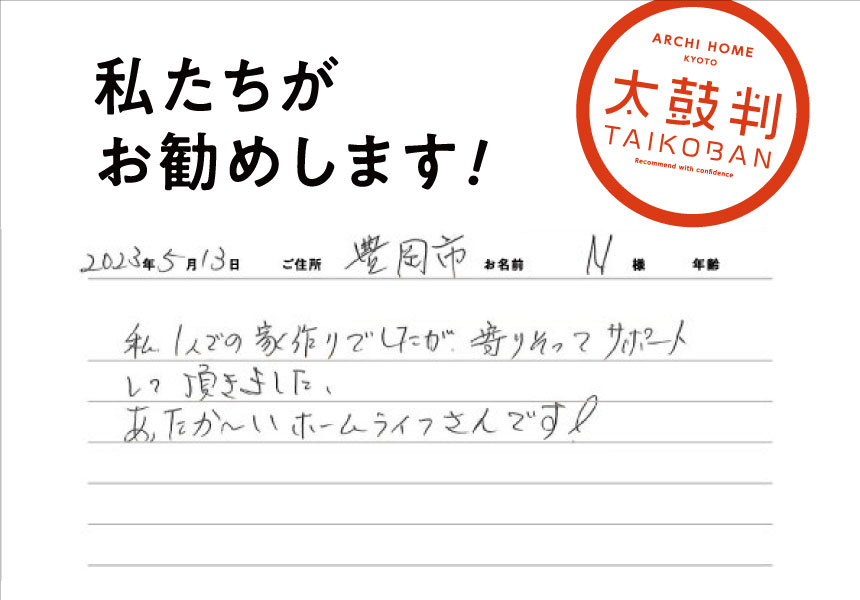 私たちが
お勧めします!
ARCHI HOME
KYOTO
太鼓判
TAIKOBAN
Recommend with confidence
2023年5月13日 ご住所 豊岡市 お名前 N 様 年齢
私1人での家作りでしたが、寄りそってサポート
して頂きました、
あったか〜いホームライフさんです!